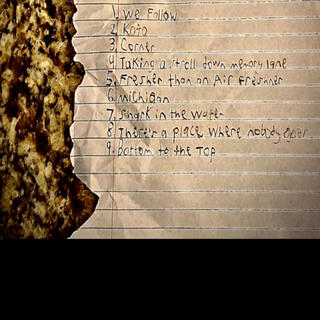 1. We Follow
2. Koto
3. Corner
4. Taking a stroll down memory lane
5. Fresher than an Air Freshner
6. Michigan
7. Shark in the water
8. There's a place where nobody goes
9. bottom to the Top